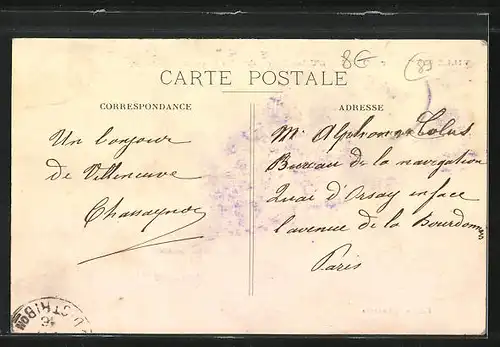 8€
(89)
CARTE POSTALE
CORRESPONDANCE
ADRESSE
Un bonjour
de Villeneuve
Mr Alphonse
Bureau de la navigation
Quai d'Orsay en face
l'avenue de la Bourdonnais
Paris
DISTRIBON